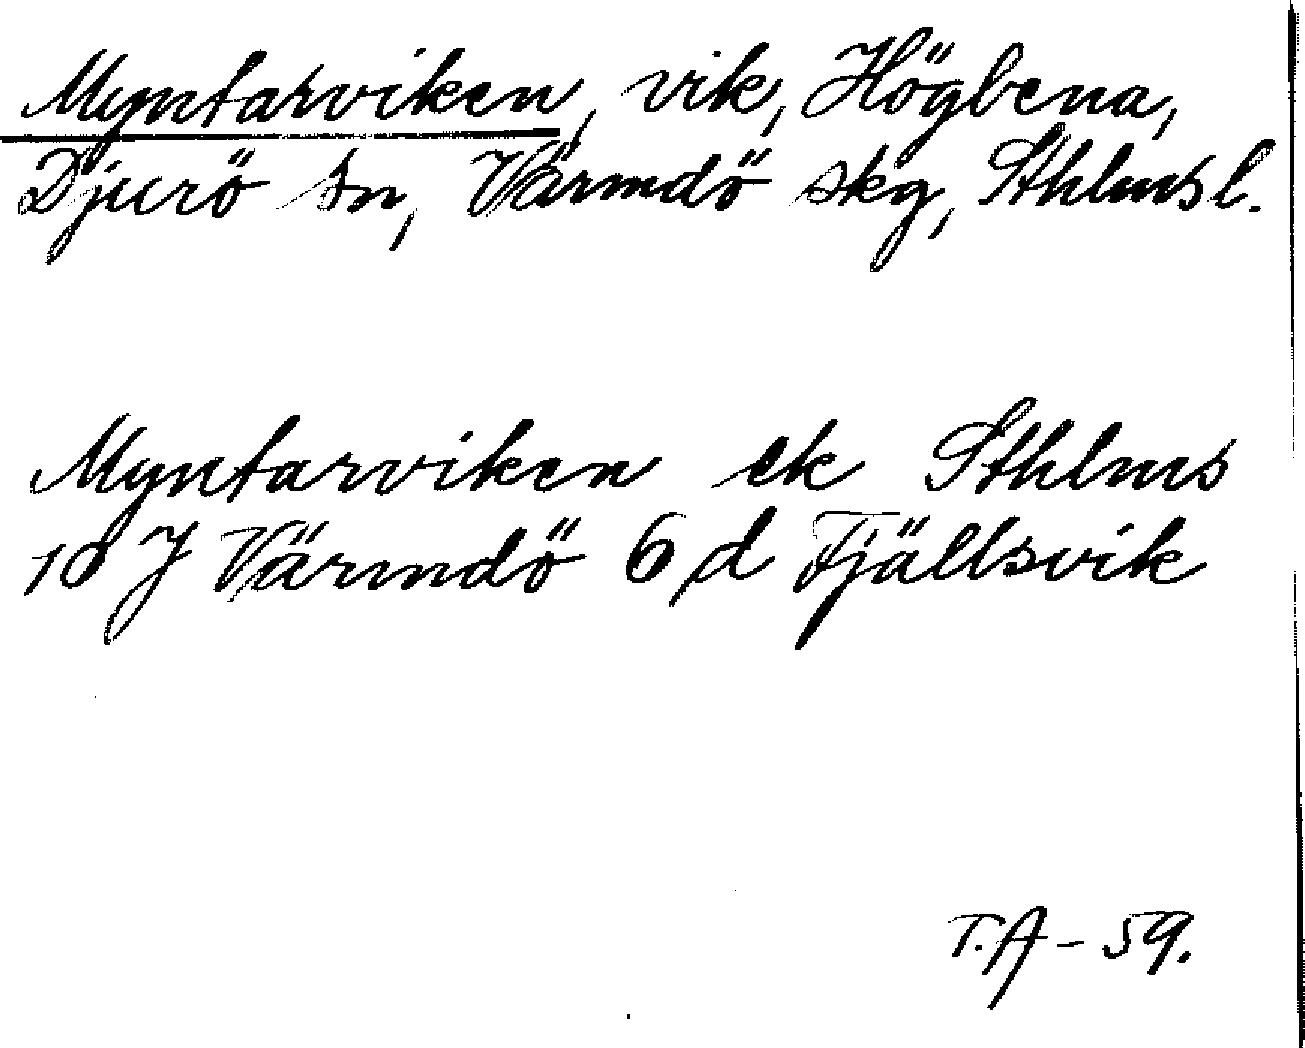 Myntarviken, vik, Högbena,
Djurö sn, Värmdö skg, Sthlms l.
Myntarviken ek Sthlms
10 J Värmdö 6 d Fjällsvik
T.A - 59.